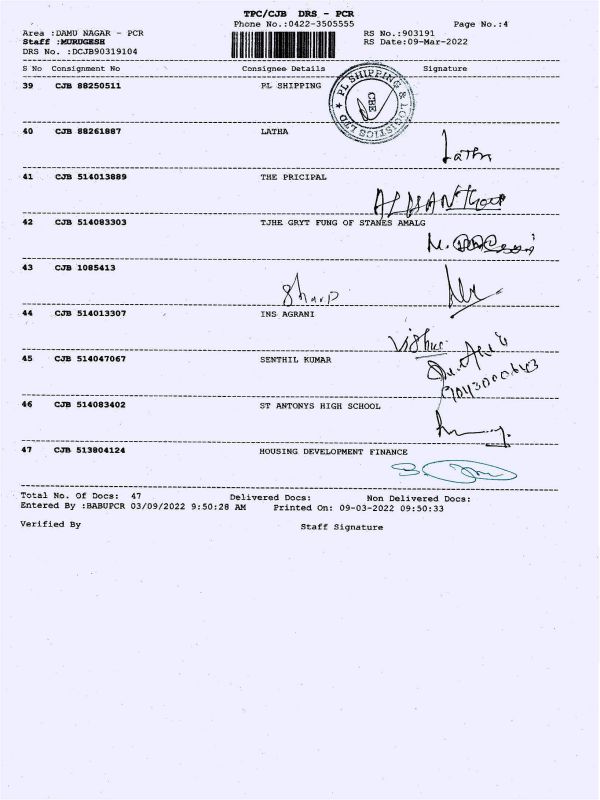 TPC/CJB DRS - PCR
Phone No.:0422-3505555
Page No.:4
Area :DAMU NAGAR - PCR
RS No.:903191
Staff :MURUGESH
RS Date:09-Mar-2022
DRS No. :DCJB90319104
S No Consignment No Consignee Details Signature
39 CJB 88250511 PL SHIPPING
PL SHIPPING & LOGISTICS LTD
CBE
40 CJB 88261887 LATHA
Latha
41 CJB 514013889 THE PRICIPAL
42 CJB 514083303 TJHE GRYT FUNG OF STANES AMALG
43 CJB 1085413
Sharp
44 CJB 514013307 INS AGRANI
45 CJB 514047067 SENTHIL KUMAR
46 CJB 514083402 ST ANTONYS HIGH SCHOOL
47 CJB 513804124 HOUSING DEVELOPMENT FINANCE
Total No. Of Docs: 47 Delivered Docs: Non Delivered Docs:
Entered By :BABUPCR 03/09/2022 9:50:28 AM Printed On: 09-03-2022 09:50:33
Verified By Staff Signature